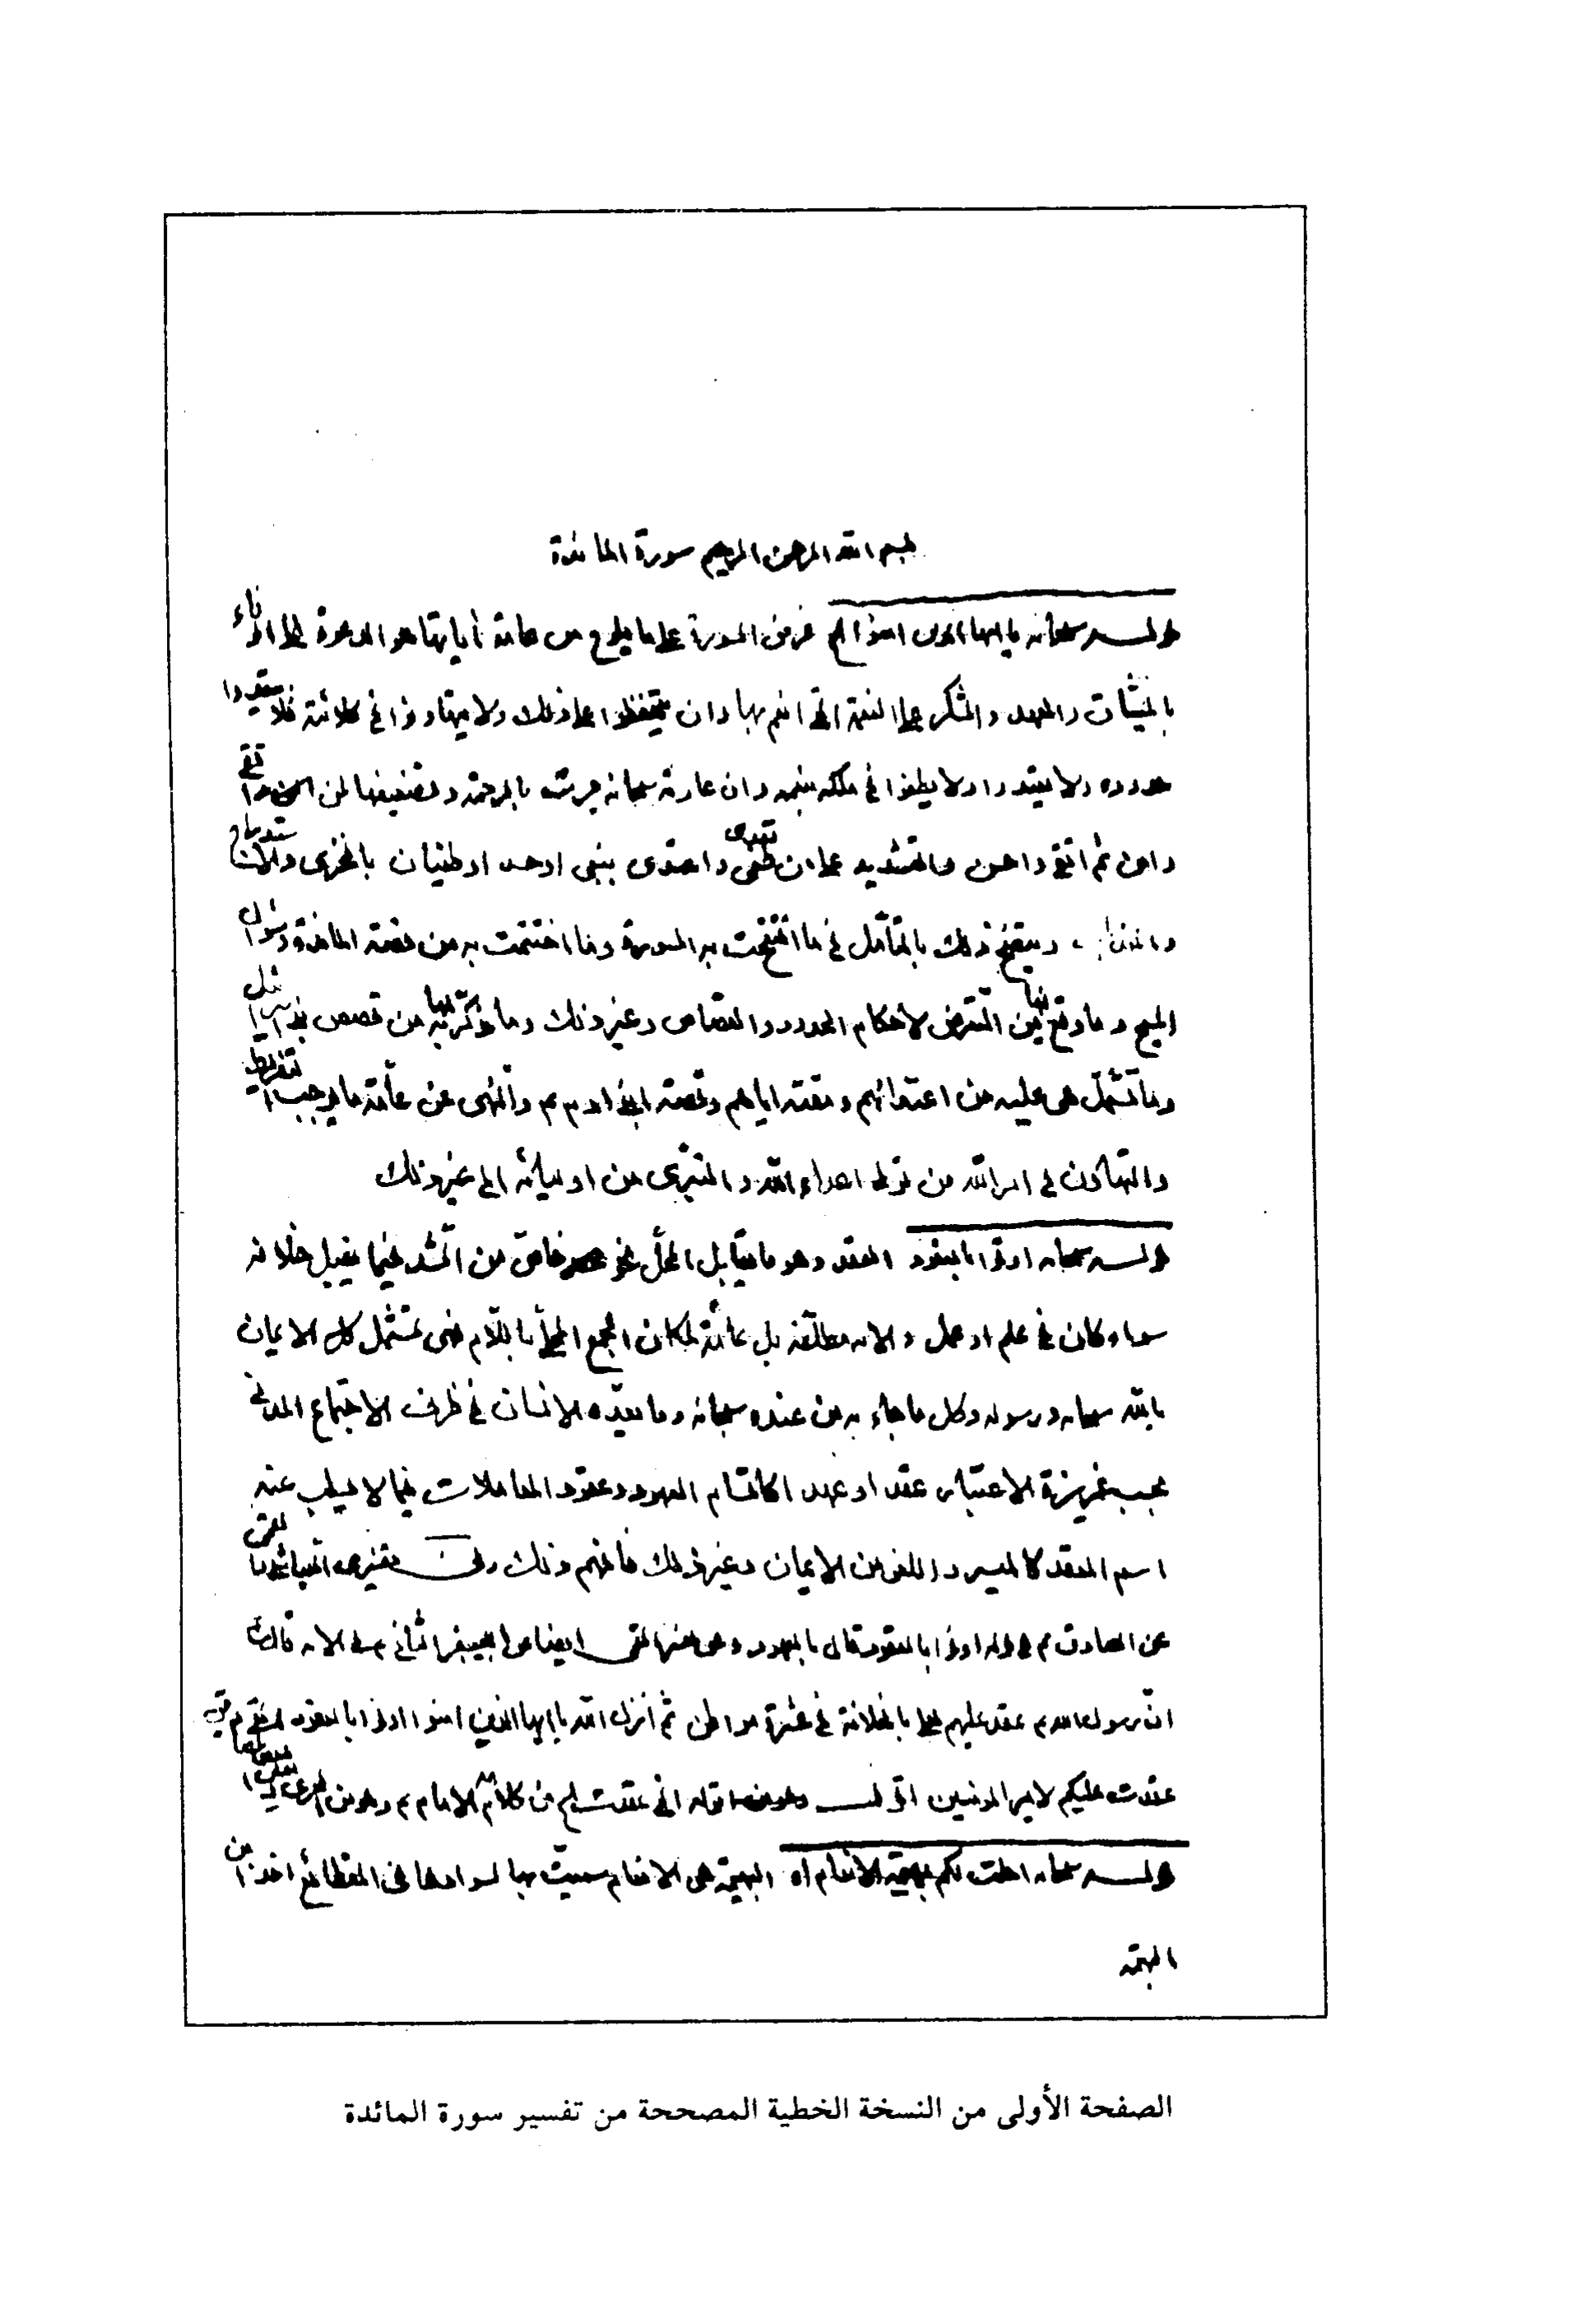 بسم الله الرحمن الرحيم سورة المائدة
قوله سبحانه يا ايها الذين امنوا الخ غرض السورة على ما يلوح من عامة آياتها هو الدعوة الى الوفاء
بالميثاق والعهد والشكر على النعمة التي انعم بها وان يتحفظوا على ذلك ولا يتهاونوا في كلائته فلا يتعدوا
حدوده ولا يعتدوا ولا يطغوا في ملكه بنعمه وان عادته سبحانه جرت بالرحمة وتضعيفها لمن آمن واتقى
وامن ثم اتقى واحسن والتشديد على من تعدى واعتدى ببغي او حسد او طغيان بالخزي والاستدراج
ويتضح ذلك بالتأمل في ما افتتحت به السورة وما اختتمت به من قصة المائدة وسؤال
المسيح وما وقع فيها من التعرض لأحكام الحدود والقصاص وغير ذلك وما ذكر فيها من قصص بني اسرائيل
وما تشتمل هي عليه من اعتدائهم ونقمته اياهم وقصة ابني ادم والنهي عن عامة ما يوجب التفريط
والتهاون في امر الله من تولي اعداء الله والتبري من اوليائه الى غير ذلك
قوله سبحانه اوفوا بالعقود العقد وهو ما يقابل الحل نحو خاص من الشد فيما يقبل خلافه
سواء كان في علم او عمل والآية مطلقة بل عامة لمكان الجمع المحلى باللام فهي تشتمل كل الايمان
بالله سبحانه ورسوله وكل ما جاء به من عنده سبحانه وما يعده الانسان في ظرف الاجتماع المدني
بحسب غريزة الاعتبار عقدا او عهدا كاقسام العهود وعقود المعاملات فيما لا يسلب عنه
اسم العقد كالميسر واللغو من الايمان وغير ذلك فافهم ذلك وفي تفسيري العياشي والقمي
عن الصادق في قوله اوفوا بالعقود قال بالعهود وعن القمي ايضا عن ابي جعفر الثاني في الآية قال
ان رسول الله عقد عليهم لعلي بالخلافة في عشرة مواطن ثم انزل الله يا ايها الذين امنوا اوفوا بالعقود التي
عقدت عليكم لامير المؤمنين اقول قوله التي عقدت الخ من كلام الامام وهو من الجري
قوله سبحانه احلت لكم بهيمة الانعام اه البهيمة هي الانعام سميت بها في القطائع اخذا من
البهمة
الصفحة الأولى من النسخة الخطية المصححة من تفسير سورة المائدة